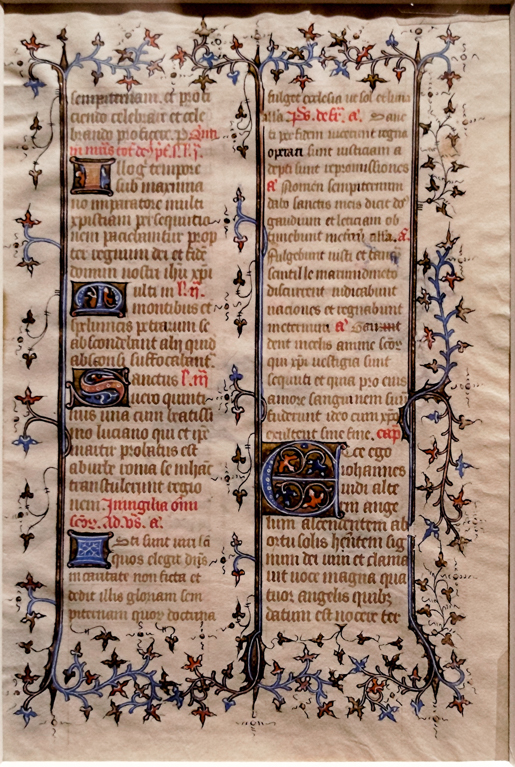 sempiternam. et profi
ciendo celebrare et cele
brando proficere. P Quin
tini mris
Illo tempore
sub maximia
no imparatore multi
xpistiani persequutio
nem paciebantur prop
ter regnum dei et fidē
domini nostri ihū xpī
Multi in l. ij.
montibus et
speluncis petrarum se
abscondebant alij quid
absconsi suffocabant.
Sanctus l. iij
vero quinti
nus una cum beatissi
mo luciano qui et ipe
martir probatus est
ab urbe roma se
transtulerunt regio
nem In vigilia omī
scōr. Ad. vs. a.
Isti sunt viri sā
quos elegit dn̄s
in caritate non ficta et
dedit illis gloriam sem
piternam quor doctrina
fulget ecclesia ut sol et luna
Ps. a. Sanc
ti per fidem vicerunt regna
operati sunt iusticiam a
depti sunt repromissiones
a. Nomen sempiternum
dabo sanctis meis dicit dō
gaudium et leticiam ob
tinebunt a.
Fulgebunt iusti et tanq̄
scintille in arundineto
discurrent iudicabunt
naciones et regnabunt
in eternum a. Gau
dent in celis anime scōr
qui xpi vestigia sunt
sequuti et quia pro eius
amore sanguinem suū
fuderunt ideo cum xpō
exultent sine fine. cap
Ecce ego
iohannes
vidi alte
rum ange
lum ascendentem ab
ortu solis hn̄tem sig
num dei vivi et clama
vit voce magna qua
tuor angelis quibz
datum est nocere ter